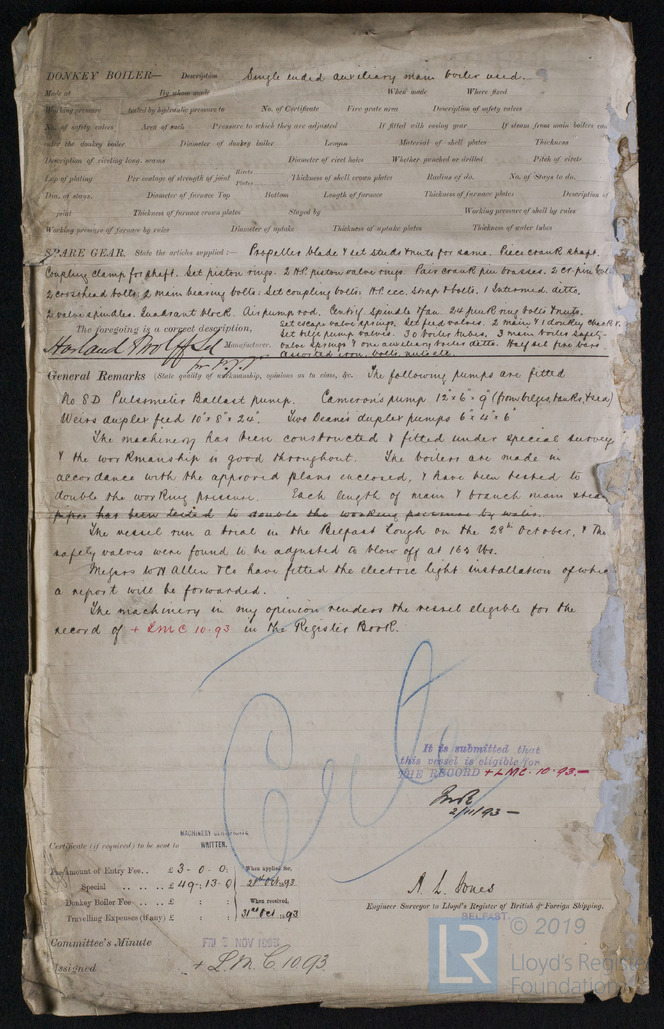 DONKEY BOILER— Description Single ended auxiliary main boiler used.
Made at By whom made When made Where fixed
Working pressure tested by hydraulic pressure to No. of Certificate Fire grate area Description of safety valves
No. of safety valves Area of each Pressure to which they are adjusted If fitted with easing gear If steam from main boilers can
enter the donkey boiler Diameter of donkey boiler Length Material of shell plates Thickness
Description of riveting long. seams Diameter of rivet holes Whether punched or drilled Pitch of rivets
Lap of plating Per centage of strength of joint Rivets Plates Thickness of shell crown plates Radius of do. No. of Stays to do.
Dia. of stays. Diameter of furnace Top Bottom Length of furnace Thickness of furnace plates Description of
joint Thickness of furnace crown plates Stayed by Working pressure of shell by rules
Working pressure of furnace by rules Diameter of uptake Thickness of uptake plates Thickness of water tubes
SPARE GEAR. State the articles supplied:— Propeller blade & set studs & nuts for same. Piece crank shaft.
Coupling clamp for shaft. Set piston rings. 2 H.P. piston valve rings. Pair crank pin brasses. 2 cr. pin bolts.
2 crosshead bolts. 2 main bearing bolts. Set coupling bolts. H.P. ecc. Strap & bolts. 1 Intermed. ditto.
2 valve spindles. Quadrant block. Air pump rod. Centrif. Spindle & fan. 24 junk ring bolts & nuts.
Set escape valve springs. Set feed valves. 2 main & 1 donkey check v.
The foregoing is a correct description,
Set bilge pump valves. 30 boiler tubes. 3 main boiler safety
Harland & Wolff Ld Manufacturer.
valve springs & one auxiliary boiler ditto. Half set fire bars
Assorted iron, bolts, nuts etc.
General Remarks (State quality of workmanship, opinions as to class, &c. The following pumps are fitted
No 8D Pulsometer Ballast pump. Cameron's pump 12" x 6" x 9" (from bilges, tanks, & sea)
Weirs duplex feed 10" x 8" x 24". Two Deane's duplex pumps 6" x 4" x 6"
The machinery has been constructed & fitted under special survey
& the workmanship is good throughout. The boilers are made in
accordance with the approved plans enclosed, & have been tested to
double the working pressure. Each length of main & branch main steam
pipes has been tested to double the working pressure by water.
The vessel run a trial in the Belfast Lough on the 28th October, & the
safety valves were found to be adjusted to blow off at 164 lbs.
Messrs W H Allen & Co have fitted the electric light installation of which
a report will be forwarded.
The machinery in my opinion renders the vessel eligible for the
record of + LMC 10.93 in the Register Book.
It is submitted that
this vessel is eligible for
THE RECORD + LMC. 10.93.
2/11/93
MACHINERY CERTIFICATE
WRITTEN.
Certificate (if required) to be sent to
The amount of Entry Fee.. £ 3 - 0 - 0 : When applied for,
Special .. .. .. .. £ 49 - 13 - 0 21st Oct. 1893
Donkey Boiler Fee .. £ : : When received,
Travelling Expenses (if any) £ : : 31st Oct. 1893
A. L. Jones
Engineer Surveyor to Lloyd's Register of British & Foreign Shipping.
BELFAST.
Committee's Minute FRI 3 NOV 1893
Assigned + L.M.C. 10.93
© 2019
LR
Lloyd's Register
Foundation